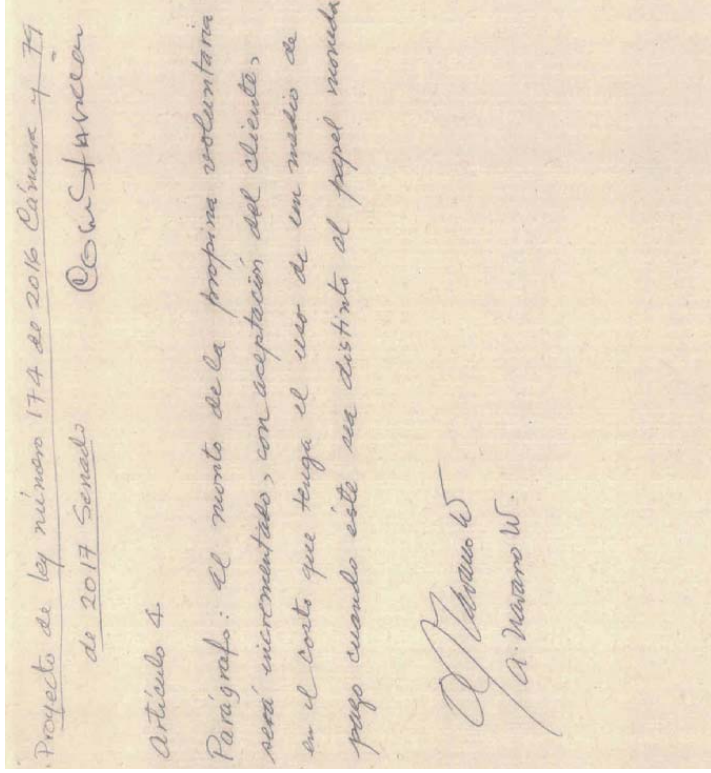 Proyecto de ley número 174 de 2016 Cámara y 79
de 2017 Senado Constancia
Artículo 4
Parágrafo: El monto de la propina voluntaria
será incrementado, con aceptación del cliente,
en el costo que tenga el uso de un medio de
pago cuando éste sea distinto al papel moneda
A. Navarro W.